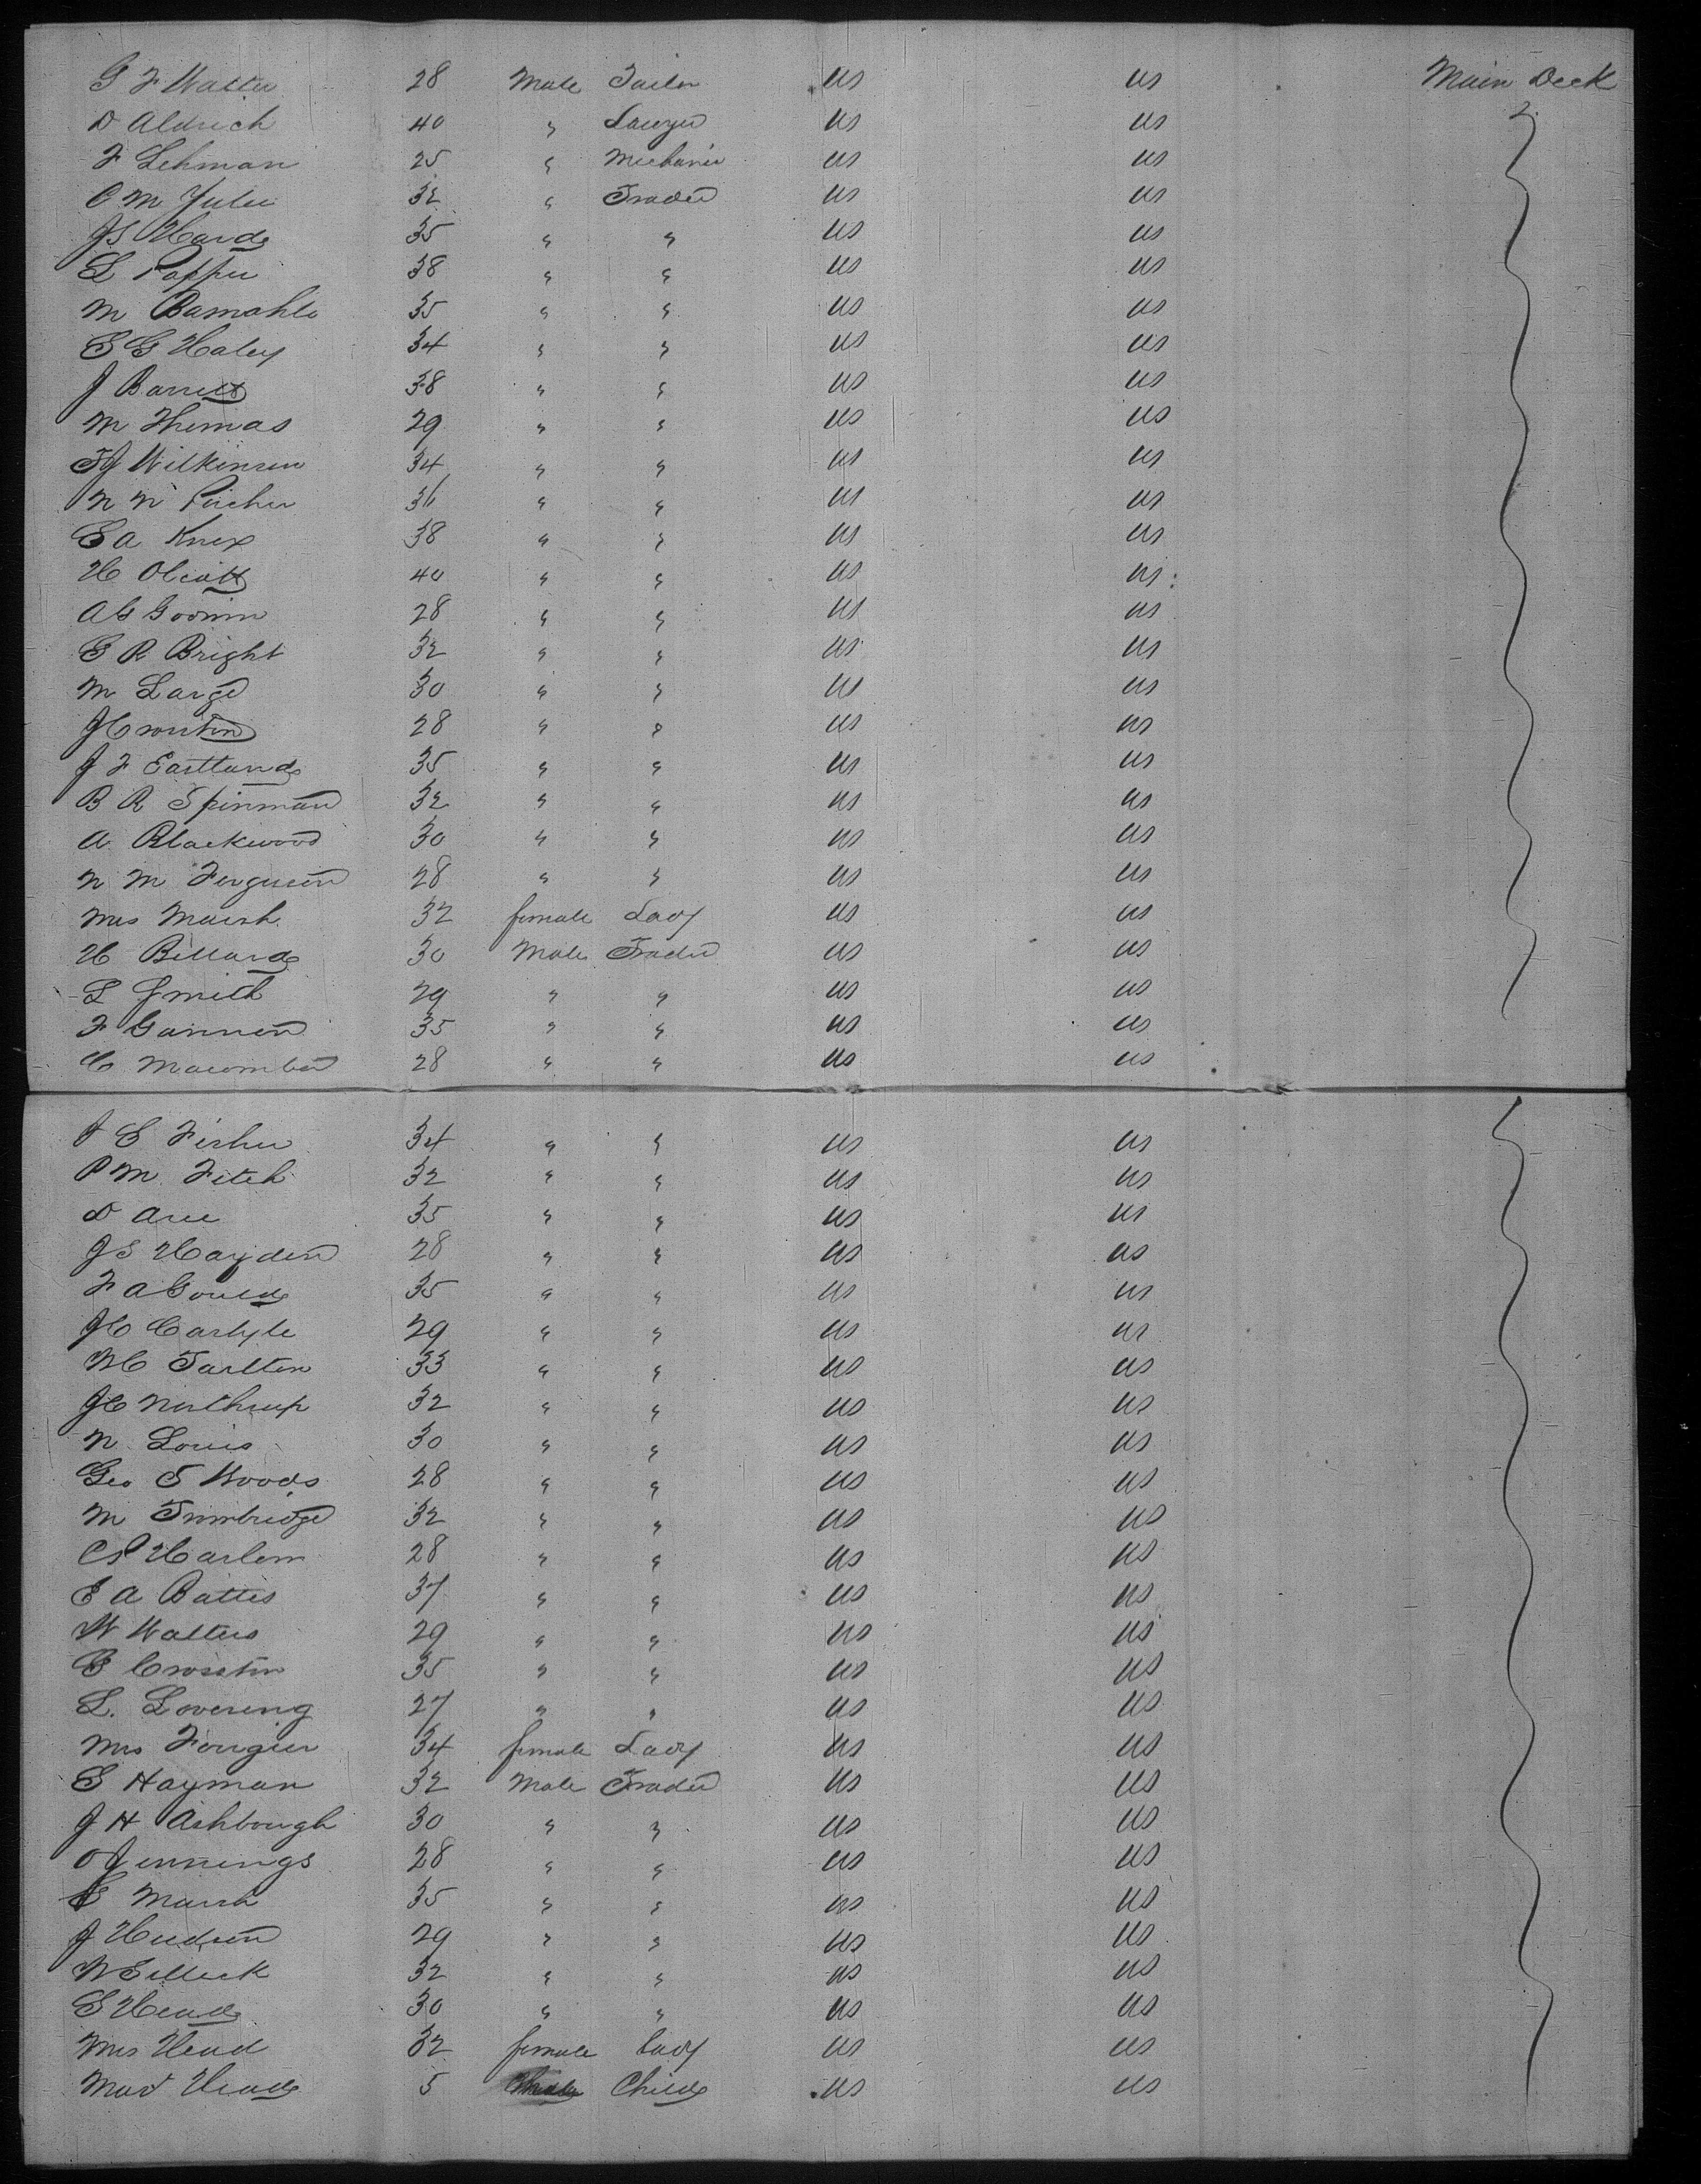 G F Walter 28 Male Tailor US US Main Deck
D Aldrich 40 " Lawyer US US
F Lehman 25 " Mechanic US US
32 " Trader US US
JS Hard 35 " " US US
L Popper 38 " " US US
M 35 " " US US
E G Haley 34 " " US US
J Barrett 38 " " US US
M Thomas 29 " " US US
TJ Wilkinson 34 " " US US
N N Pircher 36 " " US US
E A Knox 38 " " US US
H Olcott 40 " " US US
A G Goodwin 28 " " US US
E R Bright 32 " " US US
M Large 30 " " US US
28 " " US US
J F Eastland 35 " " US US
B R Spinman 32 " " US US
A Blackwood 30 " " US US
N M Ferguson 28 " " US US
Mrs Marsh 32 female Lady US US
H Billard 30 Male Trader US US
L Smith 29 " " US US
F Gannon 35 " " US US
C Macomber 28 " " US US
J E Fisher 34 " " US US
P M Fitch 32 " " US US
D 35 " " US US
JS Hayden 28 " " US US
F A Gould 35 " " US US
JC Carlyle 29 " " US US
Tarlton 33 " " US US
JC Northrup 32 " " US US
N Louis 30 " " US US
Geo S Woods 28 " " US US
M Trowbridge 32 " " US US
CP Harlem 28 " " US US
E A Battis 37 " " US US
W Walters 29 " " US US
E Crosstin 35 " " US US
L. Lovering 27 " " US US
Mrs Forgier 34 female Lady US US
E Hayman 32 Male Trader US US
J H Ashbough 30 " " US US
O Jennings 28 " " US US
E Marsh 35 " " US US
J Hudson 29 " " US US
W Elleck 32 " " US US
E Head 30 " " US US
Mrs Head 32 female Lady US US
Mas Head 5 Child US US